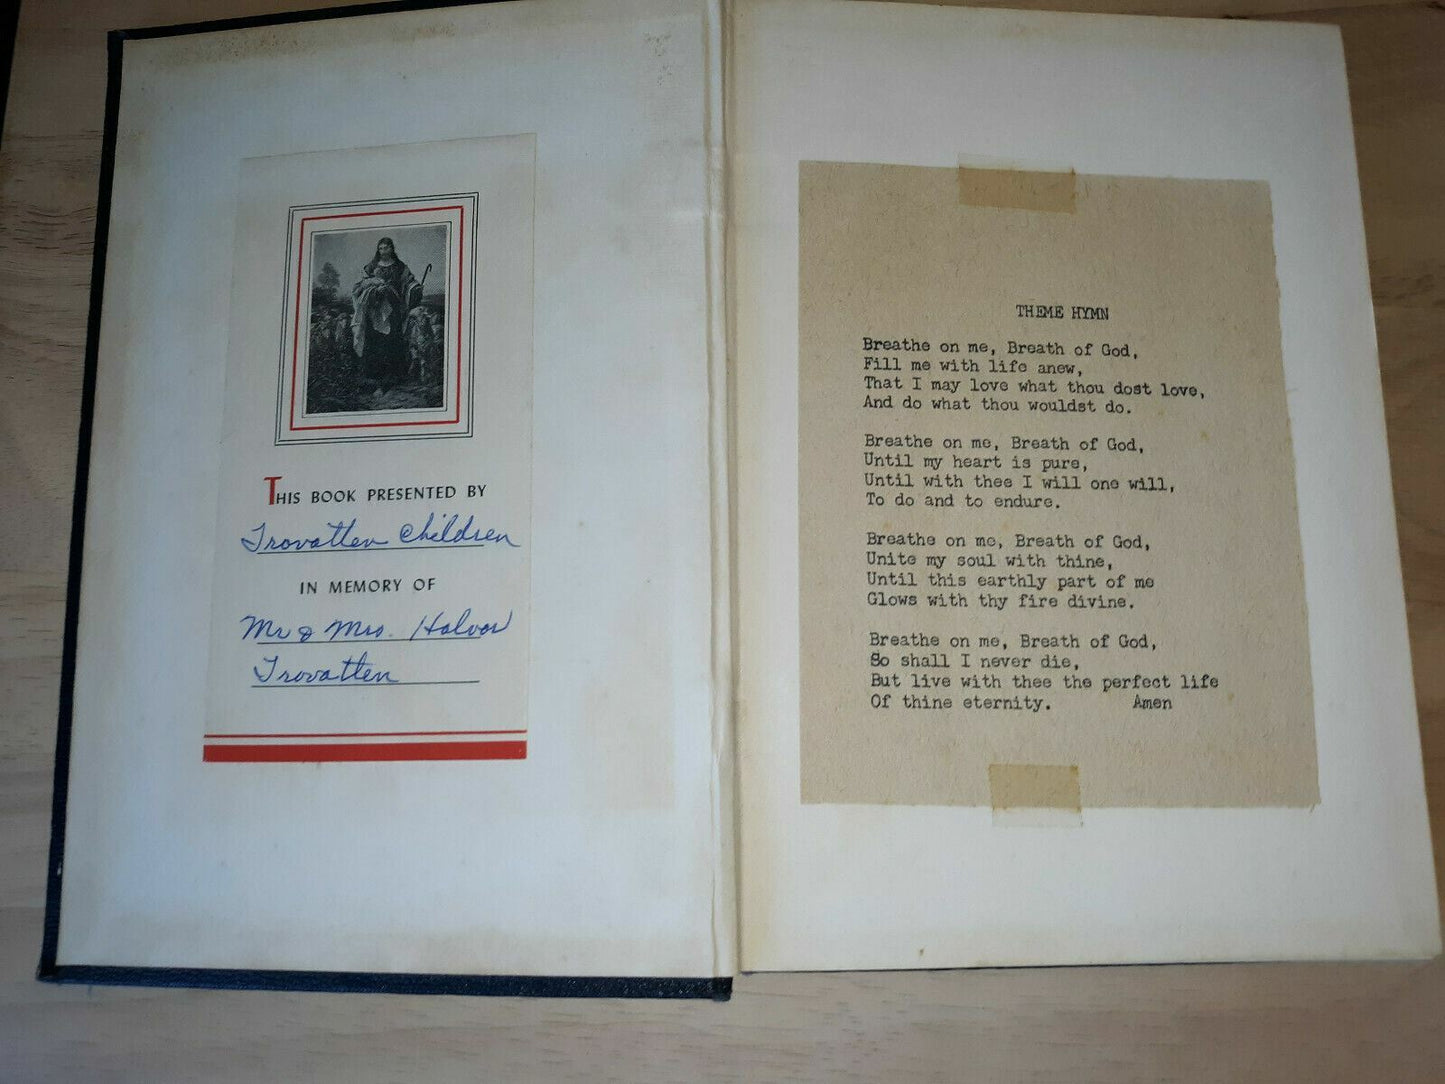 THIS BOOK PRESENTED BY
Trovatten Children
IN MEMORY OF
Mr & Mrs. Halvor
Trovatten
THEME HYMN
Breathe on me, Breath of God,
Fill me with life anew,
That I may love what thou dost love,
And do what thou wouldst do.
Breathe on me, Breath of God,
Until my heart is pure,
Until with thee I will one will,
To do and to endure.
Breathe on me, Breath of God,
Unite my soul with thine,
Until this earthly part of me
Glows with thy fire divine.
Breathe on me, Breath of God,
So shall I never die,
But live with thee the perfect life
Of thine eternity. Amen